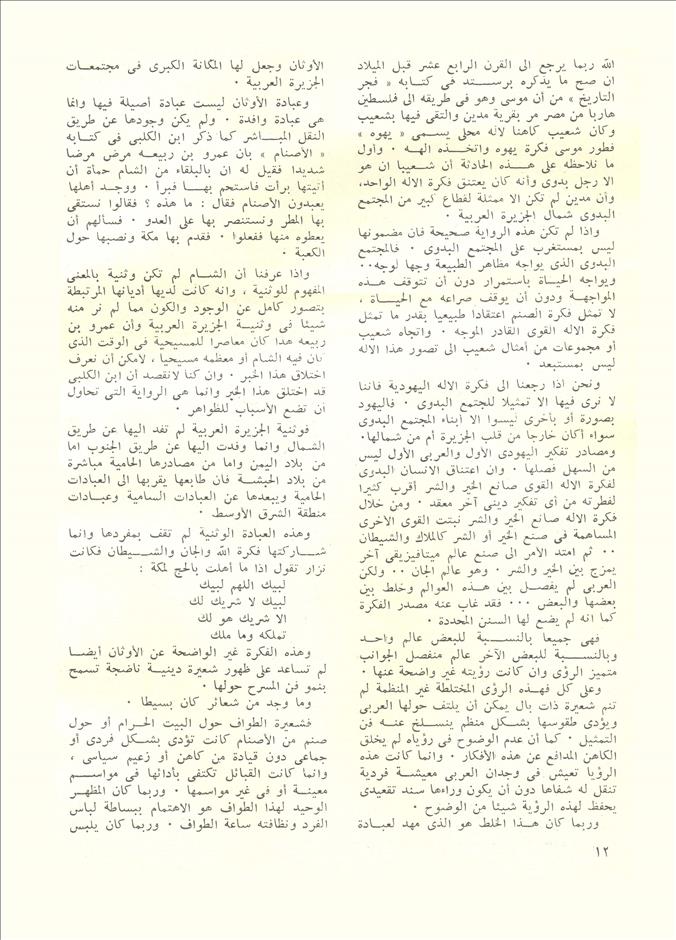 الله ربما يرجع الى القرن الرابع عشر قبل الميلاد
ان صح ما يذكره برستد فى كتابه « فجر
التاريخ » من أن موسى وهو فى طريقه الى فلسطين
هاربا من مصر مر بقرية مدين والتقى فيها بشعيب
وكان شعيب كاهنا لاله محلى يسمى « يهوه »
فطور موسى فكرة يهوه واتخذه الهه ٠ وأول
ما نلاحظه على هذه الحادثة أن شعيبا ان هو
الا رجل بدوى وأنه كان يعتنق فكرة الاله الواحد،
وأن مدين لم تكن الا ممثلة لقطاع كبير من المجتمع
البدوى شمال الجزيرة العربية ٠
واذا لم تكن هذه الرواية صحيحة فان مضمونها
ليس بمستغرب على المجتمع البدوى ٠ فالمجتمع
البدوى الذى يواجه مظاهر الطبيعة وجها لوجه٠٠
ويواجه الحياة باستمرار دون أن تتوقف هذه
المواجهة ودون أن يوقف صراعه مع الحياة ،
لا تمثل فكرة الصنم اعتقادا طبيعيا بقدر ما تمثل
فكرة الاله القوى القادر الموجه ٠ واتجاه شعيب
أو مجموعات من أمثال شعيب الى تصور هذا الاله
ليس بمستبعد ٠
ونحن اذا رجعنا الى فكرة الاله اليهودية فاننا
لا نرى فيها الا تمثيلا للجتمع البدوى ٠ فاليهود
بصورة أو بأخرى ليسوا الا أبناء المجتمع البدوى
سواء أكان خارجا من قلب الجزيرة أم من شمالها٠
ومصادر تفكير اليهودى الأول والعربى الأول ليس
من السهل فصلها ٠ وان اعتناق الانسان البدوى
لفكرة الاله القوى صانع الخير والشر أقرب كثيرا
لفطرته من أى تفكير دينى آخر معقد ٠ ومن خلال
فكرة الاله صانع الخير والشر نبتت القوى الأخرى
المساهمة فى صنع الخير أو الشر كالملاك والشيطان
٠٠ ثم امتد الأمر الى صنع عالم ميتافيزيقى آخر
يمزج بين الخير والشر ٠ وهو عالم الجان ٠٠ ولكن
العربى لم يفصل بين هذه العوالم وخلط بين
بعضها والبعض ٠٠٠ فقد غاب عنه مصدر الفكرة
كما انه لم يضع لها السنن المحددة ٠
فهى جميعا بالنسبة للبعض عالم واحد
وبالنسبة للبعض الآخر عالم منفصل الجوانب
متميز الرؤى وان كانت رؤيته غير واضحة عنها ٠
وعلى كل فهذه الرؤى المختلطة غير المنظمة لم
تنم شعيرة ذات بال يمكن أن يلتف حولها العربى
ويؤدى طقوسها بشكل منظم ينسلخ عنه فن
التمثيل ٠ كما أن عدم الوضوح فى رؤياه لم يخلق
الكاهن المدافع عن هذه الأفكار ٠ وانما كانت هذه
الرؤيا تعيش فى وجدان العربى معيشة فردية
تنقل له شفاها دون أن يكون وراءها سند تقعيدى
يحفظ لهذه الرؤية شيئا من الوضوح ٠
وربما كان هذا الخلط هو الذى مهد لعبادة
الأوثان وجعل لها المكانة الكبرى فى مجتمعات
الجزيرة العربية ٠
وعبادة الأوثان ليست عبادة أصيلة فيها وانما
هى عبادة وافدة ٠ ولم يكن وجودها عن طريق
النقل المباشر كما ذكر ابن الكلبى فى كتابه
« الأصنام » بان عمرو بن ربيعه مرض مرضا
شديدا فقيل له ان بالبلقاء من الشام حمأة أن
أتيتها برأت فاستحم بها فبرأ ٠ ووجد أهلها
يعبدون الأصنام فقال : ما هذه ؟ فقالوا نستقى
بها المطر ونستنصر بها على العدو ٠ فسألهم أن
يعطوه منها ففعلوا ٠ فقدم بها مكة ونصبها حول
الكعبة ٠
واذا عرفنا أن الشام لم تكن وثنية بالمعنى
المفهوم للوثنية ، وانه كانت لديها أديانها المرتبطة
بتصور كامل عن الوجود والكون مما لم نر منه
شيئا فى وثنية الجزيرة العربية وأن عمرو بن
ربيعه هذا كان معاصرا للمسيحية فى الوقت الذى
كان فيه الشام أو معظمه مسيحيا ، لامكن أن نعرف
اختلاق هذا الخبر ٠ وان كنا لانقصد أن ابن الكلبى
قد اختلق هذا الخبر وانما هى الرواية التى تحاول
أن تضع الأسباب للظواهر ٠
فوثنية الجزيرة العربية لم تفد اليها عن طريق
الشمال وانما وفدت اليها عن طريق الجنوب اما
من بلاد اليمن واما من مصادرها الحامية مباشرة
من بلاد الحبشة فان طابعها يقربها الى العبادات
الحامية ويبعدها عن العبادات السامية وعبادات
منطقة الشرق الأوسط ٠
وهذه العبادة الوثنية لم تقف بمفردها وانما
شاركتها فكرة الله والجان والشيطان فكانت
نزار تقول اذا ما أهلت بالحج لمكة :
لبيك اللهم لبيك
لبيك لا شريك لك
الا شريك هو لك
تملكه وما ملك
وهذه الفكرة غير الواضحة عن الأوثان أيضا
لم تساعد على ظهور شعيرة دينية ناضجة تسمح
بنمو فن المسرح حولها ٠
وما وجد من شعائر كان بسيطا ٠
فشعيرة الطواف حول البيت الحرام أو حول
صنم من الأصنام كانت تؤدى بشكل فردى أو
جماعى دون قيادة من كاهن أو زعيم سياسى ،
وانما كانت القبائل تكتفى بأدائها فى مواسم
معينة أو فى غير مواسمها ٠ وربما كان المظهر
الوحيد لهذا الطواف هو الاهتمام ببساطة لباس
الفرد ونظافته ساعة الطواف ٠ وربما كان يلبس
١٢